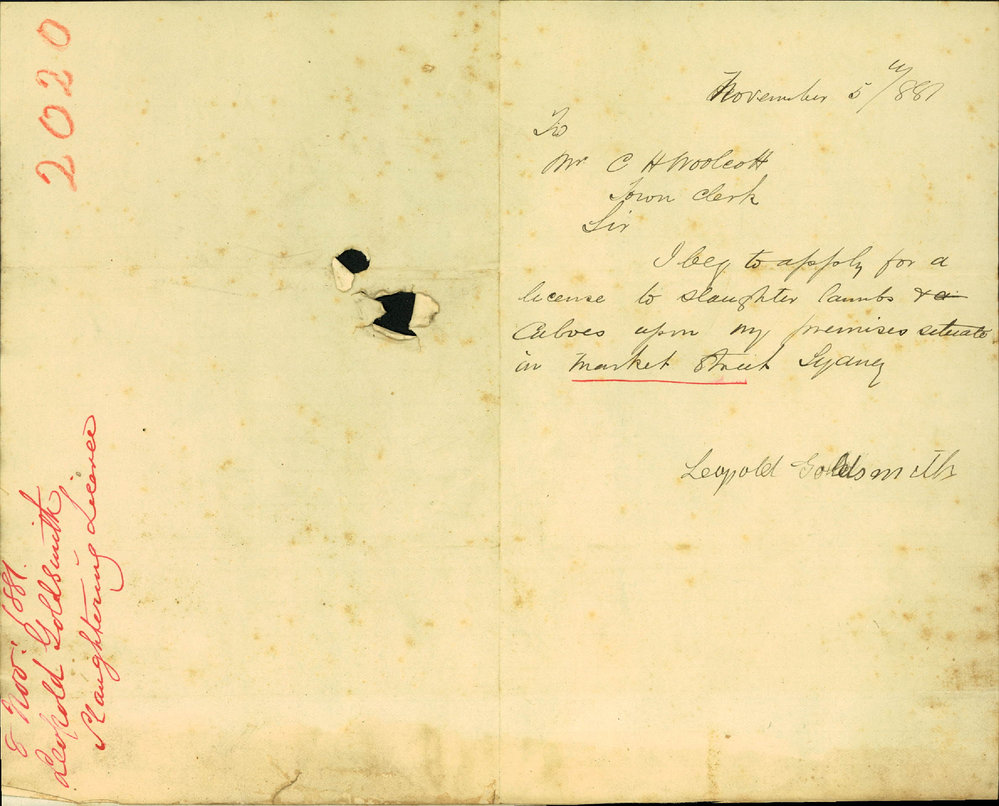 2020
8 Nov: 1881.
Leopold Goldsmith
Slaughtering License
November 5th/881
To
Mr C H Woolcott
Town Clerk
Sir
I beg to apply for a
license to slaughter lambs &
Calves upon my premises situate
in Market Street Sydney
Leopold Goldsmith